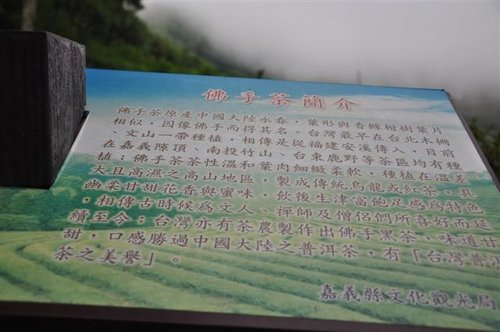 佛手茶簡介
佛手茶原產中國大陸永春、葉形與香櫞柑樹葉片
相似，因像佛手而得其名。台灣最早在台北木柵
、文山一帶種植，相傳是從福建安溪傳入。目前
在嘉義隙頂、南投竹山、台東鹿野等茶區均有種
植；佛手茶茶性溫和葉肉細緻柔軟，種植在溫差
大且高濕之高山地區、製成傳統烏龍或紅茶，具
幽柔甘甜花香與蜜味、飲後生津富飽足感為特色
，相傳古時候為文人、禪師及僧侶們所喜好而延
續至今；台灣亦有茶農製作出佛手黑茶，味道甘
甜，口感勝過中國大陸之普洱茶，有「台灣普洱
茶之美譽」。
嘉義縣文化觀光局